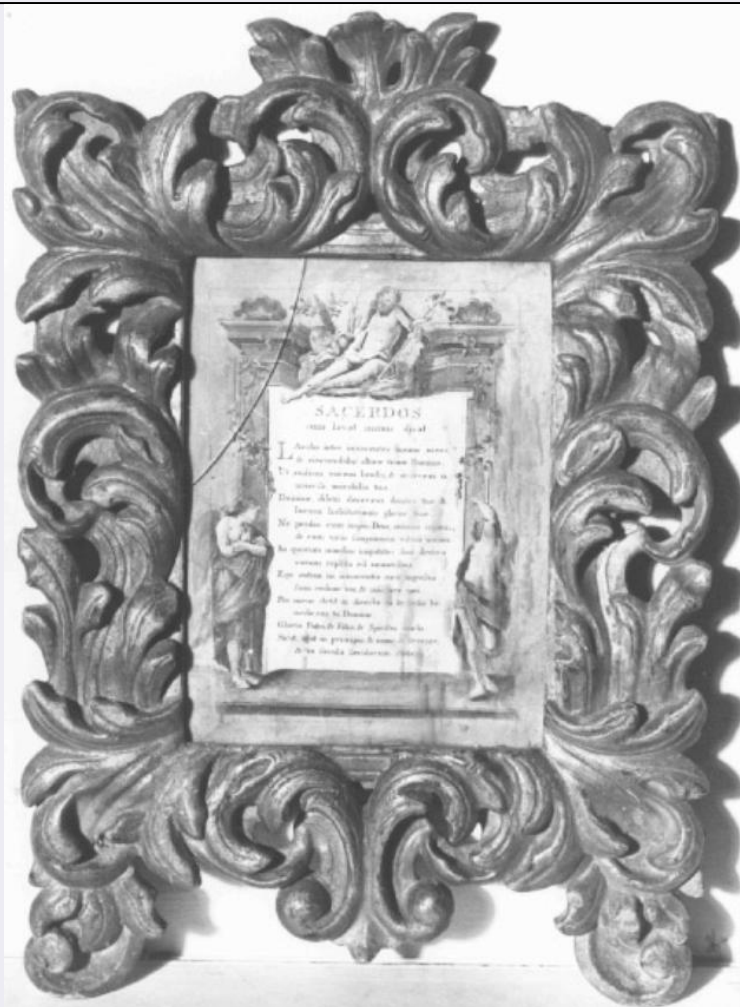 SACERDOS
cum lavat manus dicat
Lavabo inter innocentes manus meas,
& circumdabo altare tuum Domine.
Ut audiam vocem laudis, & enarrem u
niversa mirabilia tua.
Domine dilexi decorem domus tuæ &
locum habitationis gloriæ tuæ.
Ne perdas cum impiis Deus animam meam,
& cum viris sanguinum vitam meam.
In quorum manibus iniquitates sunt dextera
eorum repleta est muneribus.
Ego autem in innocentia mea ingressus
sum redime me & miserere mei.
Pes meus stetit in directo in ecclesiis be
nedicam te Domine.
Gloria Patri & Filio & Spiritui sancto.
Sicut erat in principio & nunc & semper,
& in secula seculorum